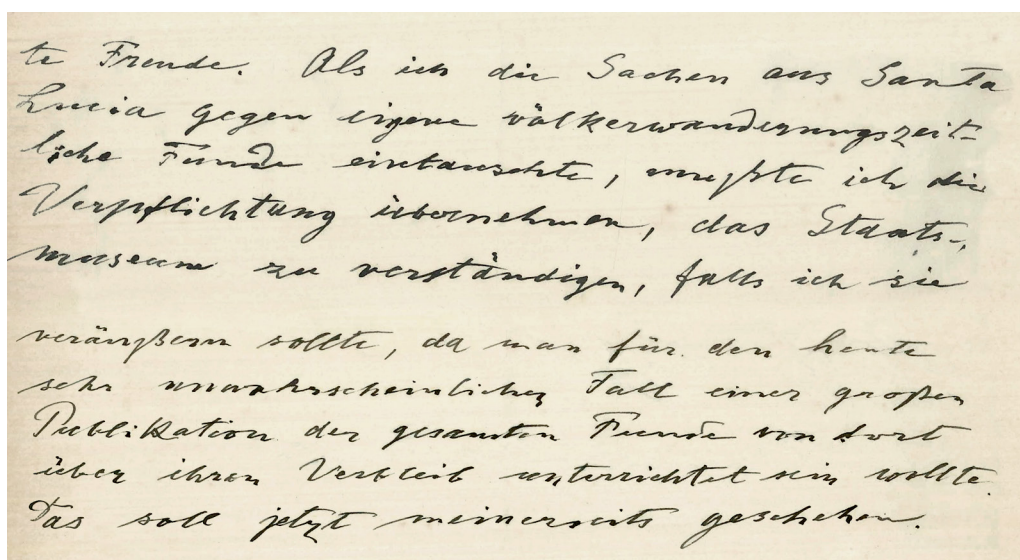 te Freude. Als ich die Sachen aus Santa
Lucia gegen eigene völkerwanderungszeit-
liche Funde eintauschte, mußte ich die
Verpflichtung übernehmen, das Staats-,
museum zu verständigen, falls ich sie
veräußern sollte, da man für den heute
sehr unwahrscheinlichen Fall einer großen
Publikation der gesamten Funde von dort
über ihren Verbleib unterrichtet sein wollte.
Das soll jetzt meinerseits geschehen.